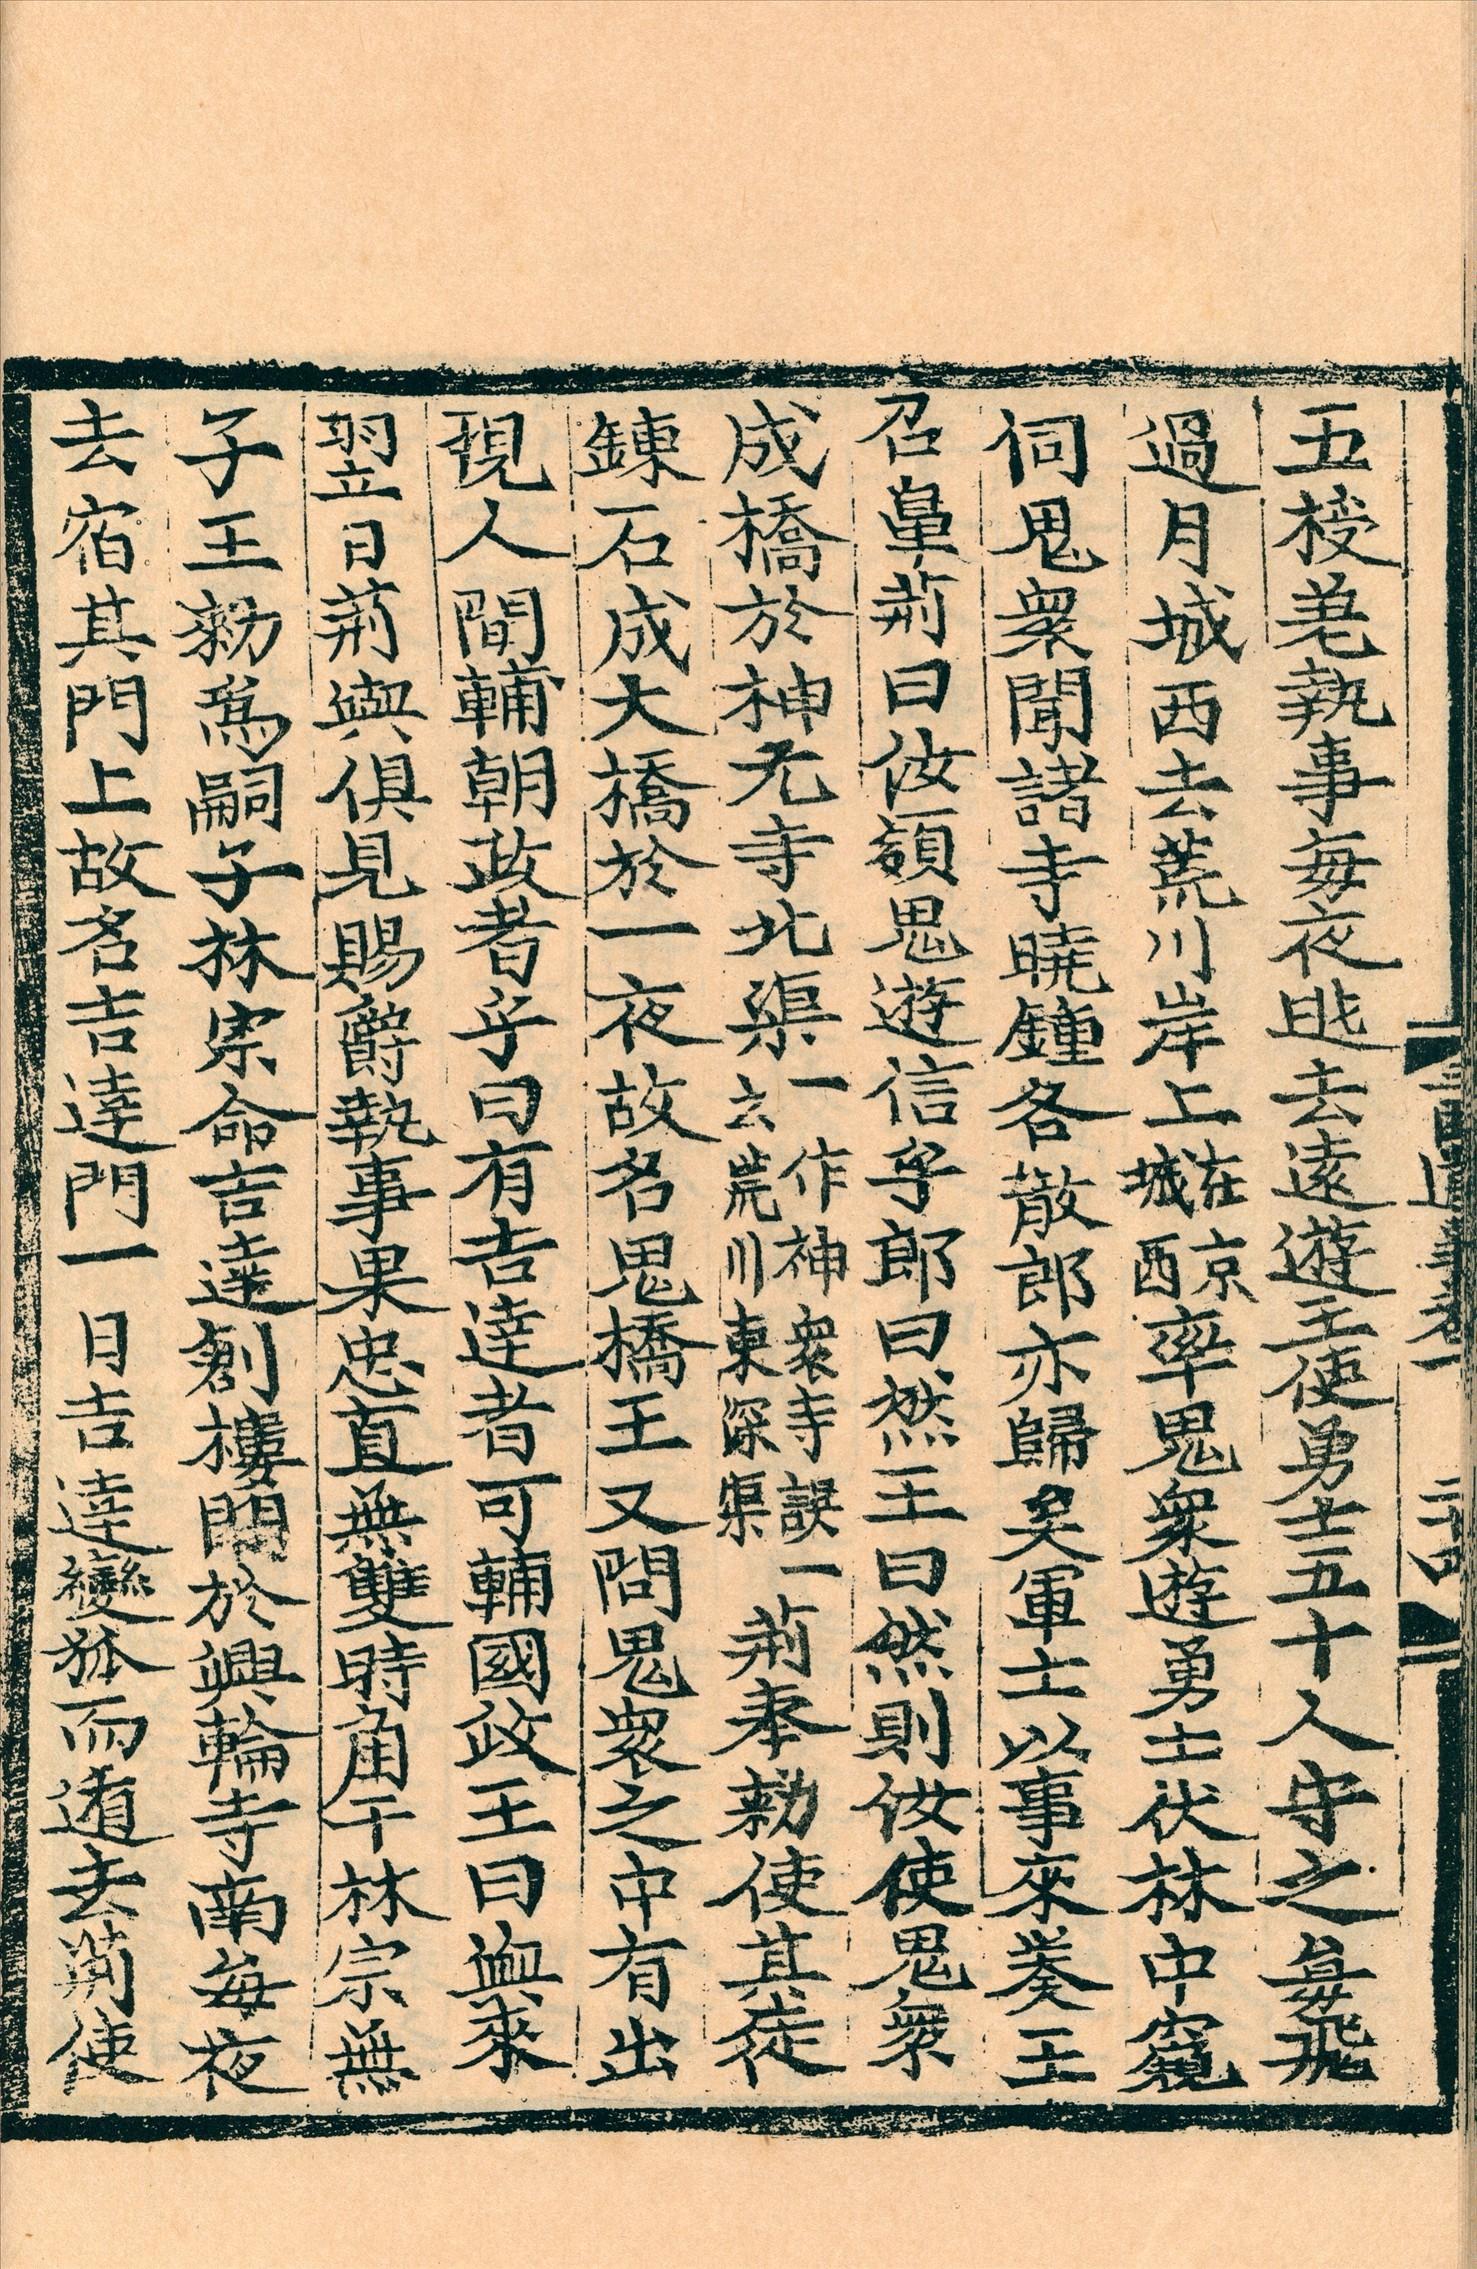 五授差執事每夜逃去遠遊王使勇士五十人守之每飛
過月城西去荒川岸上在京城西率鬼衆遊勇士伏林中窺
伺鬼衆聞諸寺曉鍾各散郎亦歸矣軍士以事來奏王
召鼻荊曰汝領鬼遊信乎郎曰然王曰然則汝使鬼衆
成橋於神元寺北渠一作神衆寺誤一云荒川東深渠荊奉勑使其徒
鍊石成大橋於一夜故名鬼橋王又問鬼衆之中有出
現人間輔朝政者乎曰有吉達者可輔國政王曰與來
翌日荊與俱見賜爵執事果忠直無雙時角干林宗無
子王勑爲嗣子林宗命吉達創樓門於興輪寺南每夜
去宿其門上故名吉達門一日吉達變狐而遁去荊使
三國遺事卷一
二十四